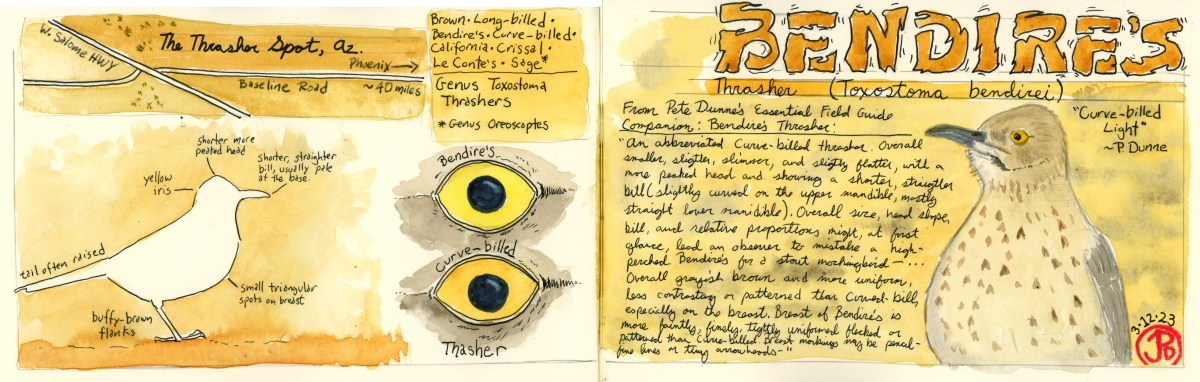 The Thrasher Spot, Az.
W. Salome HWY
Phoenix →
Baseline Road
~40 miles
Brown · Long-billed ·
Bendire's · Curve-billed ·
California · Crissal ·
Le Conte's · Sage*
Genus Toxostoma
Thrashers
*Genus Oreoscoptes
shorter more
peaked head
shorter, straighter
bill, usually pale
at the base.
yellow
iris
tail often raised
small triangular
spots on breast
buffy-brown
flanks
Bendire's
Curve-billed
Thasher
BENDIRE'S
Thrasher (Toxostoma bendirei)
From Pete Dunne's Essential Field Guide
Companion: Bendire's Thrasher:
"An abbreviated Curve-billed thrasher. Overall
smaller, sligtler, slimmer, and sligtly flatter, with a
more peaked head and showing a shorter, straigtler
bill (slightly curved on the upper mandible, mostly
straight lower manidible). Overall size, head slope,
bill, and relative proportions might, at first
glance, lead an observer to mistake a high-
perched Bendire's for a stout mockingbird—...
Overall grayish brown and more uniform,
less contrasting or patterned than Curved-bill,
especially on the breast. Breast of Bendire's is
more faintly, finely, tightly uniformed flecked or
patterned than Curve-billed. Breast markings may be pencil-
fine lines or tiny arrowheads—"
"Curve-billed
Light"
~P. Dunne
3-12-23
JPD